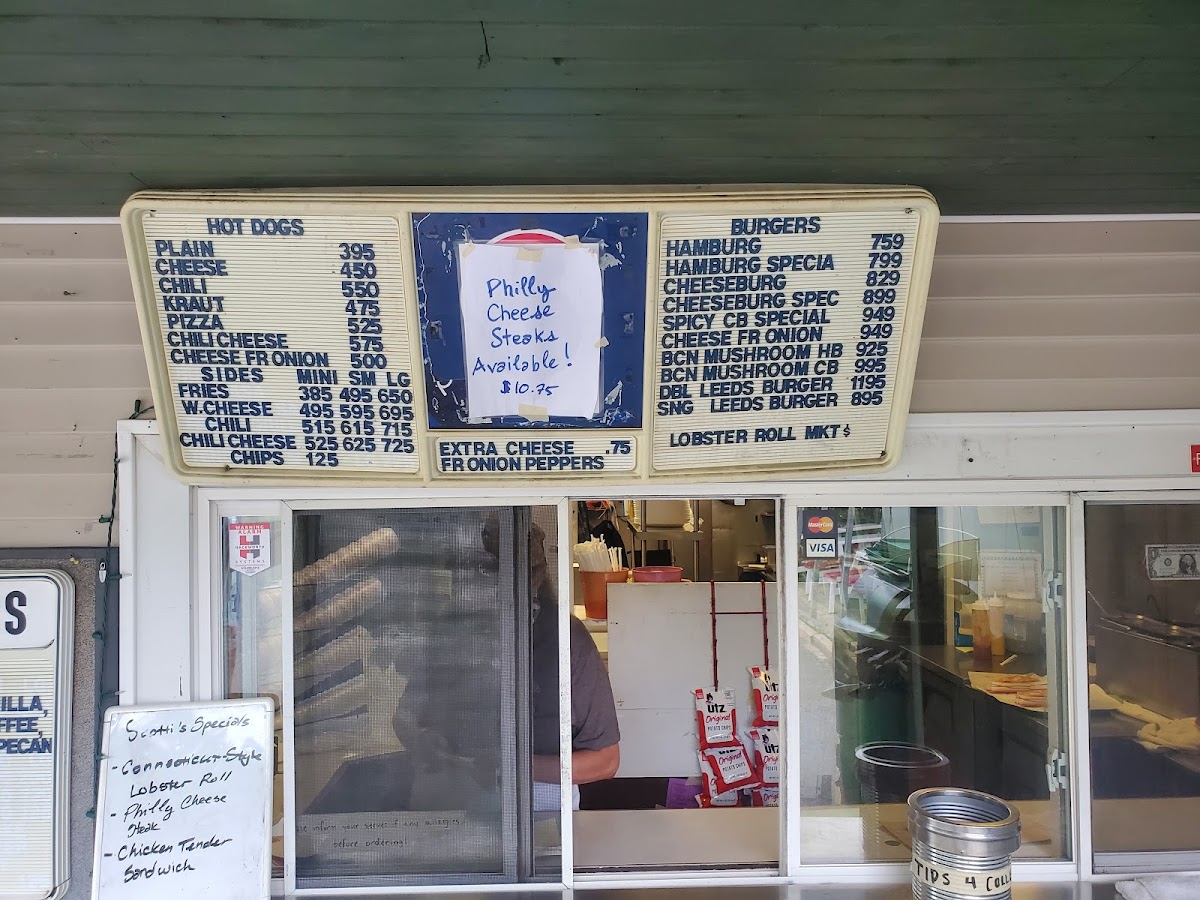 HOT DOGS
PLAIN 395
CHEESE 450
CHILI 550
KRAUT 475
PIZZA 525
CHILI CHEESE 575
CHEESE FR ONION 500
SIDES MINI SM LG
FRIES 385 495 650
W.CHEESE 495 595 695
CHILI 515 615 715
CHILI CHEESE 525 625 725
CHIPS 125
Philly
Cheese
Steaks
Available!
$10.75
EXTRA CHEESE .75
FR ONION PEPPERS
BURGERS
HAMBURG 759
HAMBURG SPECIA 799
CHEESEBURG 829
CHEESEBURG SPEC 899
SPICY CB SPECIAL 949
CHEESE FR ONION 949
BCN MUSHROOM HB 925
BCN MUSHROOM CB 995
DBL LEEDS BURGER 1195
SNG LEEDS BURGER 895
LOBSTER ROLL MKT $
S
ILLA,
FFEE,
PECAN
Scotti's Specials
- Connecticut-Style
Lobster Roll
- Philly Cheese
Steak
- Chicken Tender
Sandwich
WARNING
ALARM
SYSTEMS
inform your server if any allergies
before ordering!
MasterCard
VISA
utz
Original
POTATO CHIPS
utz
Original
utz
Original
utz
Original
TIPS 4 COLL